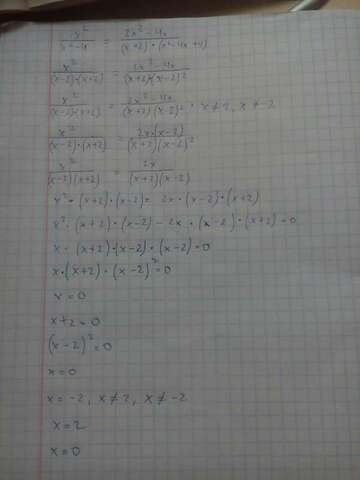 x²/(x²-4) = (2x²-4x)/((x+2)·(x²-4x+4))
x²/((x-2)·(x+2)) = (2x²-4x)/((x+2)·(x-2)²)
x²/((x-2)·(x+2)) = (2x²-4x)/((x+2)·(x-2)²), x≠2, x≠-2
x²/((x-2)·(x+2)) = 2x·(x-2)/((x+2)·(x-2)²)
x²/((x-2)(x+2)) = 2x/((x+2)(x-2))
x²·(x+2)·(x-2) = 2x·(x-2)·(x+2)
x²·(x+2)·(x-2) - 2x·(x-2)·(x+2) = 0
x·(x+2)·(x-2)·(x-2) = 0
x·(x+2)·(x-2)² = 0
x = 0
x+2 = 0
(x-2)² = 0
x = 0
x = -2, x≠2, x≠-2
x = 2
x = 0